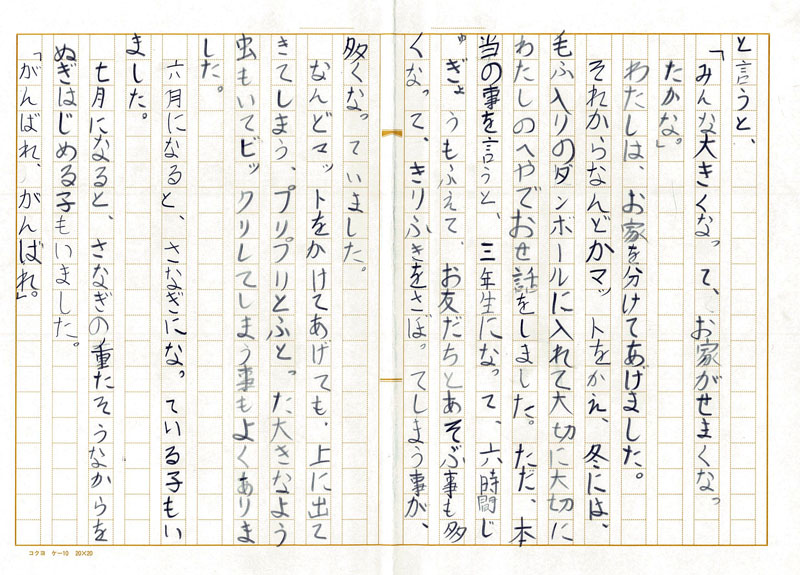 と言うと、
「みんな大きくなって、お家がせまくなっ
たかな。」
わたしは、お家を分けてあげました。
それからなんどかマットをかえ、冬には、
毛ふ入りのダンボールに入れて大切に大切に
わたしのへやでおせ話をしました。ただ、本
当の事を言うと、三年生になって、六時間じ
ゅぎょうもふえて、お友だちとあそぶ事も多
くなって、きりふきをさぼってしまう事が、
多くなっていました。
なんどマットをかけてあげても、上に出て
きてしまう、プリプリとぶとった大きなよう
虫もいてビックリしてしまう事もよくありま
した。
六月になると、さなぎになっている子もい
ました。
七月になると、さなぎの重たそうなからを
ぬぎはじめる子もいました。
「がんばれ、がんばれ。」
コクヨ ケー10 20×20